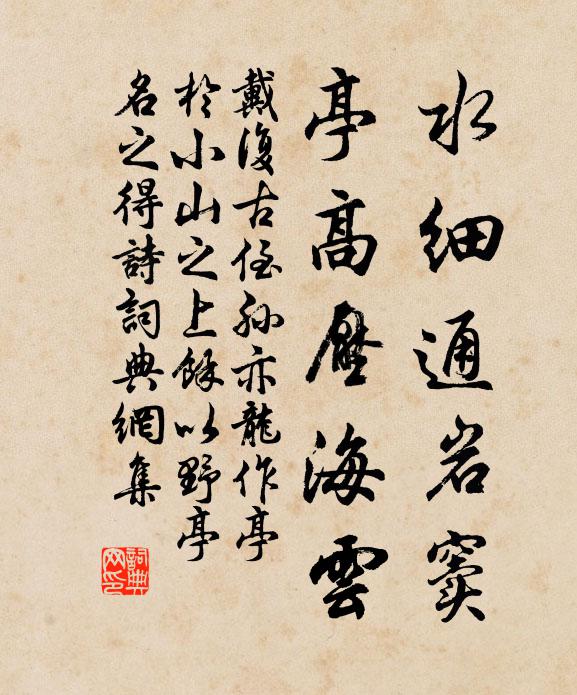 水細通岩竇
亭高壓海雲
戴復古侄孫亦龍作亭
於小山之上餘以野亭
名之得詩詞典網集
詞典网印